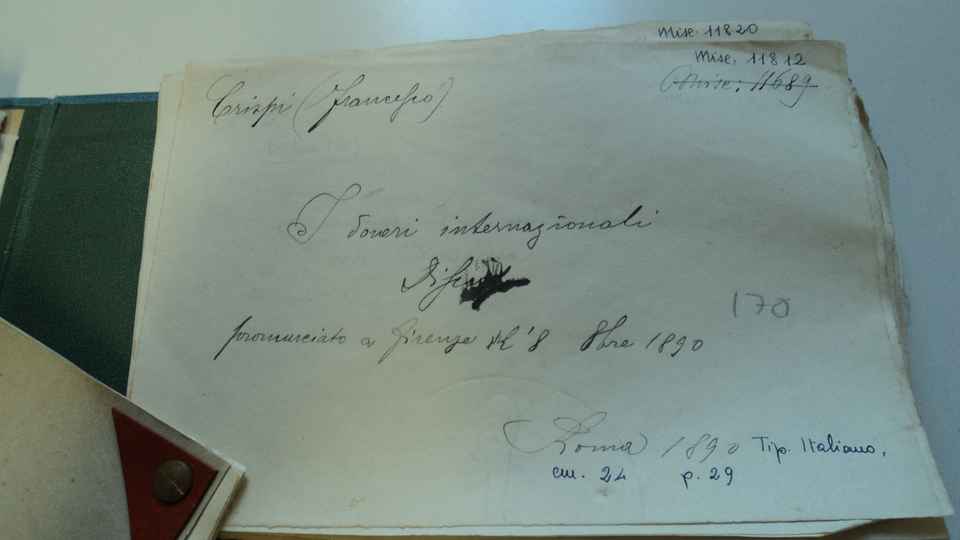 Misc. 11820
Misc. 11812
Misc. 11689
Crispi (Francesco)
I doveri internazionali
pronunciato a Firenze l'8 8bre 1890
170
Roma 1890 Tip. Italiano,
cm. 24 p. 29